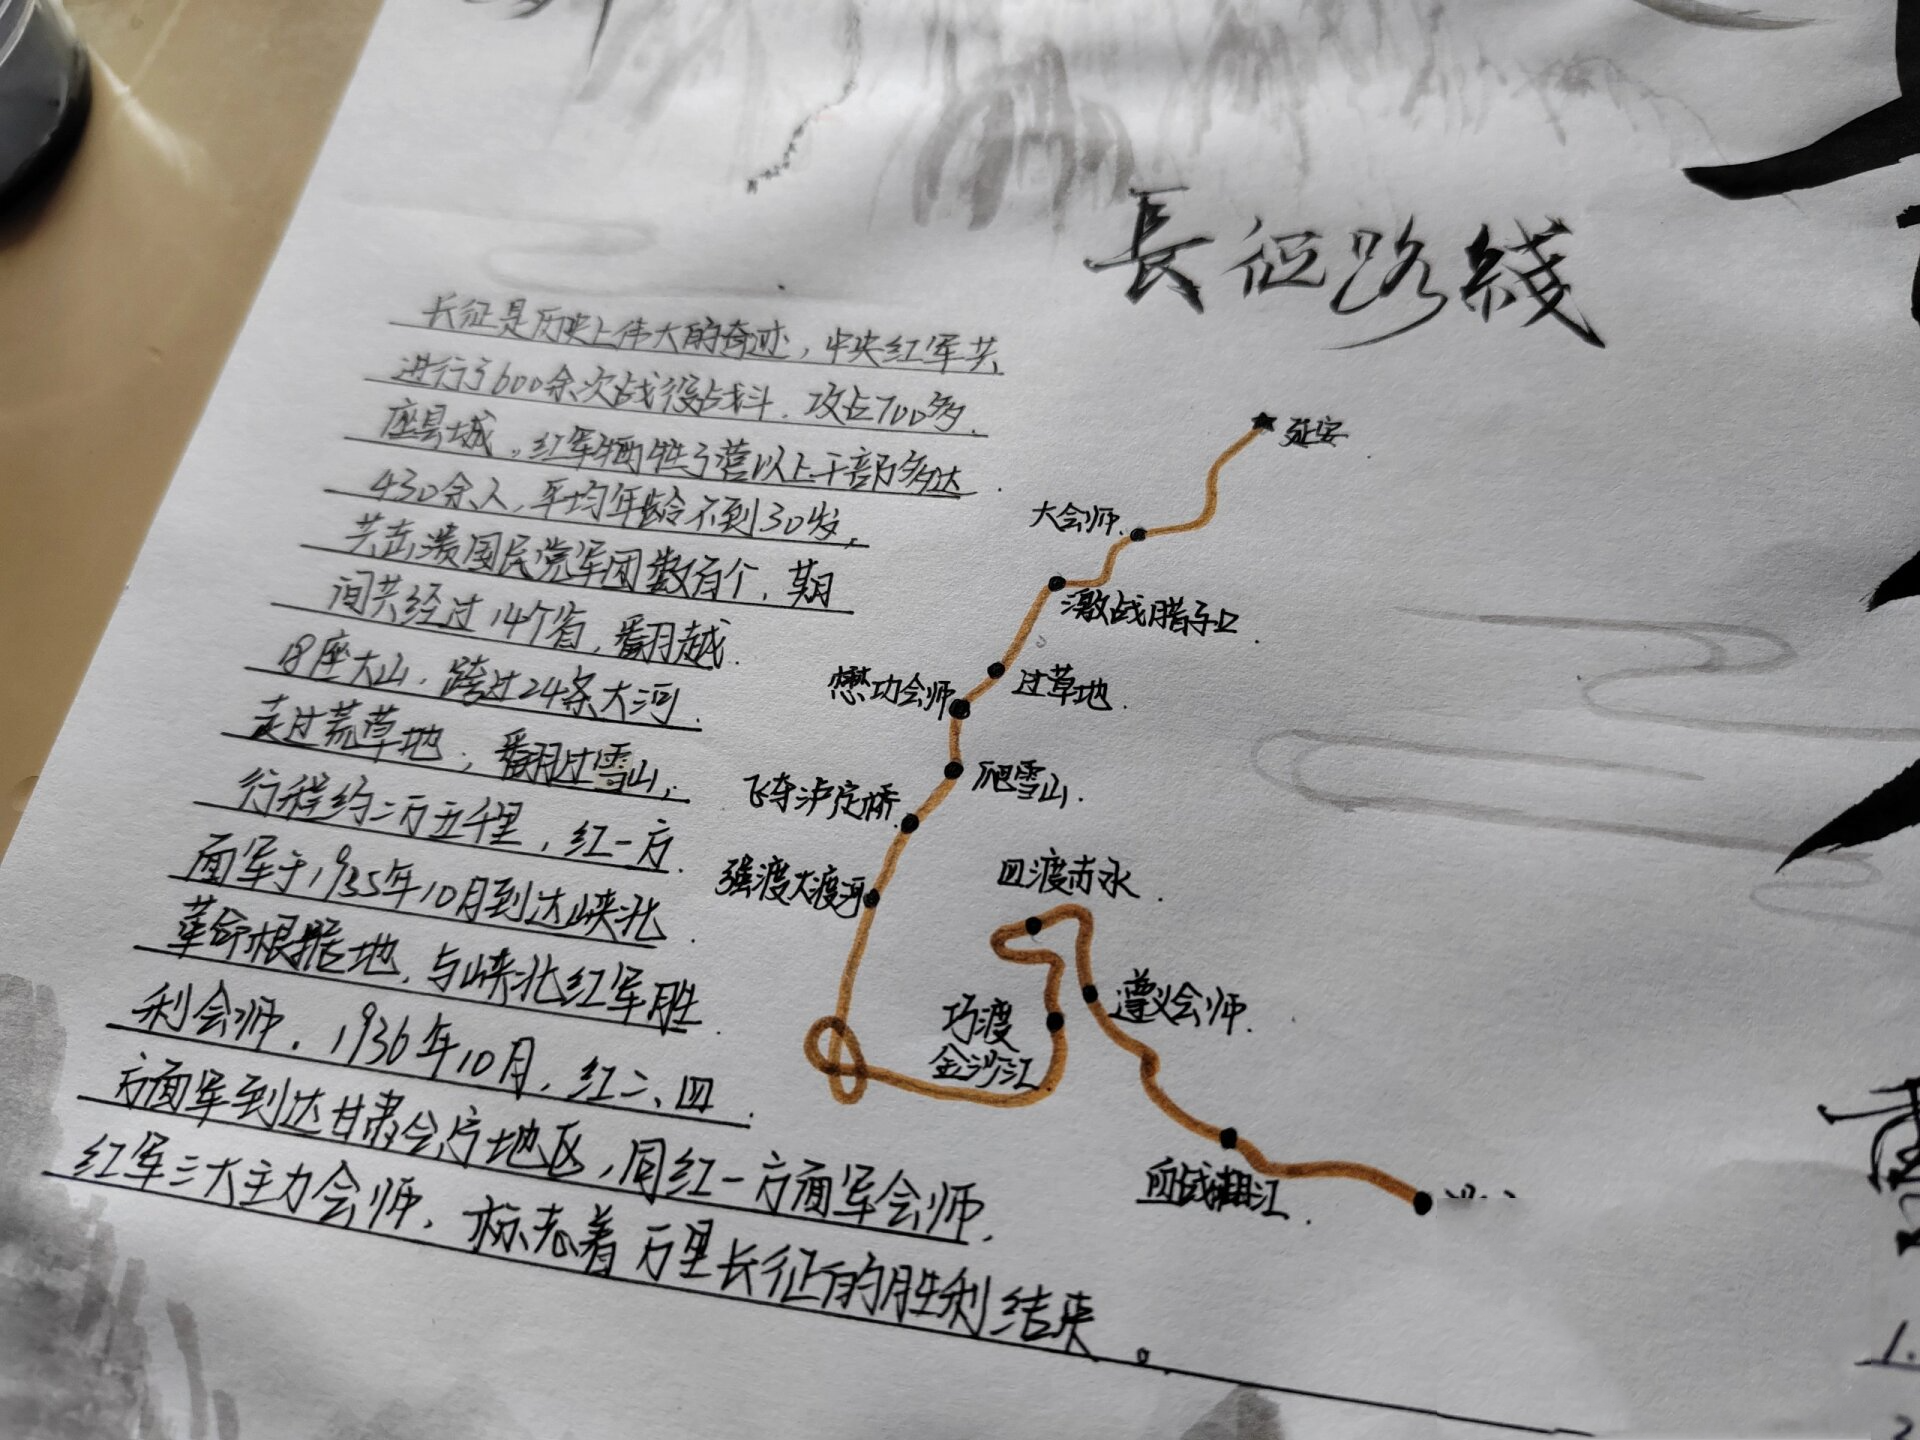 長征路綫
长征是历史上伟大的奇迹，中央红军共
进行了600余次战役战斗．攻占700多
座县城。红军牺牲了营以上干部多达
430余人，平均年龄不到30岁，
共击溃国民党军团数百个，期
间共经过14个省，翻越
18座大山．跨过24条大河
走过荒草地，翻过雪山，
行程约二万五千里，红一方
面军于1935年10月到达峡北
革命根据地，与峡北红军胜
利会师．1936年10月，红二、四
方面军到达甘肃会宁地区，同红一方面军会师．
红军三大主力会师，标志着万里长征的胜利结束。
延安
大会师．
激战腊子口．
过草地．
懋功会师
爬雪山．
飞夺泸定桥
强渡大渡河
四渡赤水．
遵义会师．
巧渡
金沙江
血战湘江．
1.
2